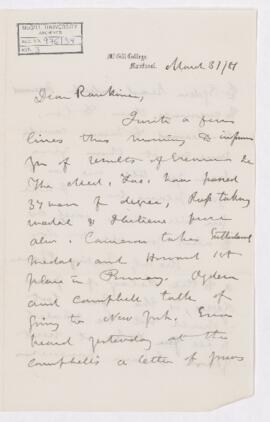 McGILL UNIVERSITY
ARCHIVES
ACC. NO. 976/34
REF. 3
McGill College,
Montreal. March 31/81
Dear Rankine,
I write a few
lines this morning to inform
you of results of Exams &c
The Med. Fac. have passed
37 men for degree, Ross taking
medal & I believe prize
also. Cameron takes Sutherland
Medal, and Howard 1st
place in Primary. Ogden
and Campbell talk of
going to New York. Ernie
heard yesterday at the
Campbell's a letter of yours